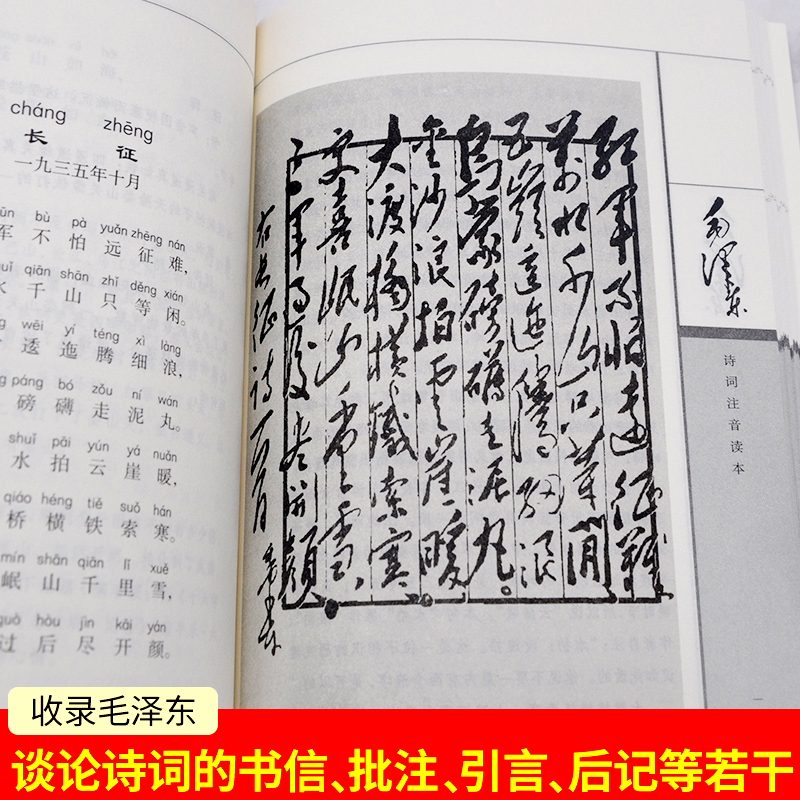 cháng zhēng
长 征
一九三五年十月
bù pà yuǎn zhēng nán
军不怕远征难，
qiān shān zhǐ děng xián
水千山只等闲。
wēi yí téng xì làng
逶迤腾细浪，
páng bó zǒu ní wán
磅礴走泥丸。
shuǐ pāi yún yá nuǎn
水拍云崖暖，
qiáo héng tiě suǒ hán
桥横铁索寒。
mín shān qiān lǐ xuě
岷山千里雪，
guò hòu jìn kāi yán
过后尽开颜。
紅軍不怕遠征難
萬水千山只等閒
五嶺逶迤騰細浪
烏蒙磅礴走泥丸。
金沙浪拍雲崖暖
大渡橋橫鐵索寒
更喜岷山千里雪
三軍過後盡開顏
右長征詩一首
毛澤東
毛澤東
诗词注音读本
收录毛泽东
谈论诗词的书信、批注、引言、后记等若干